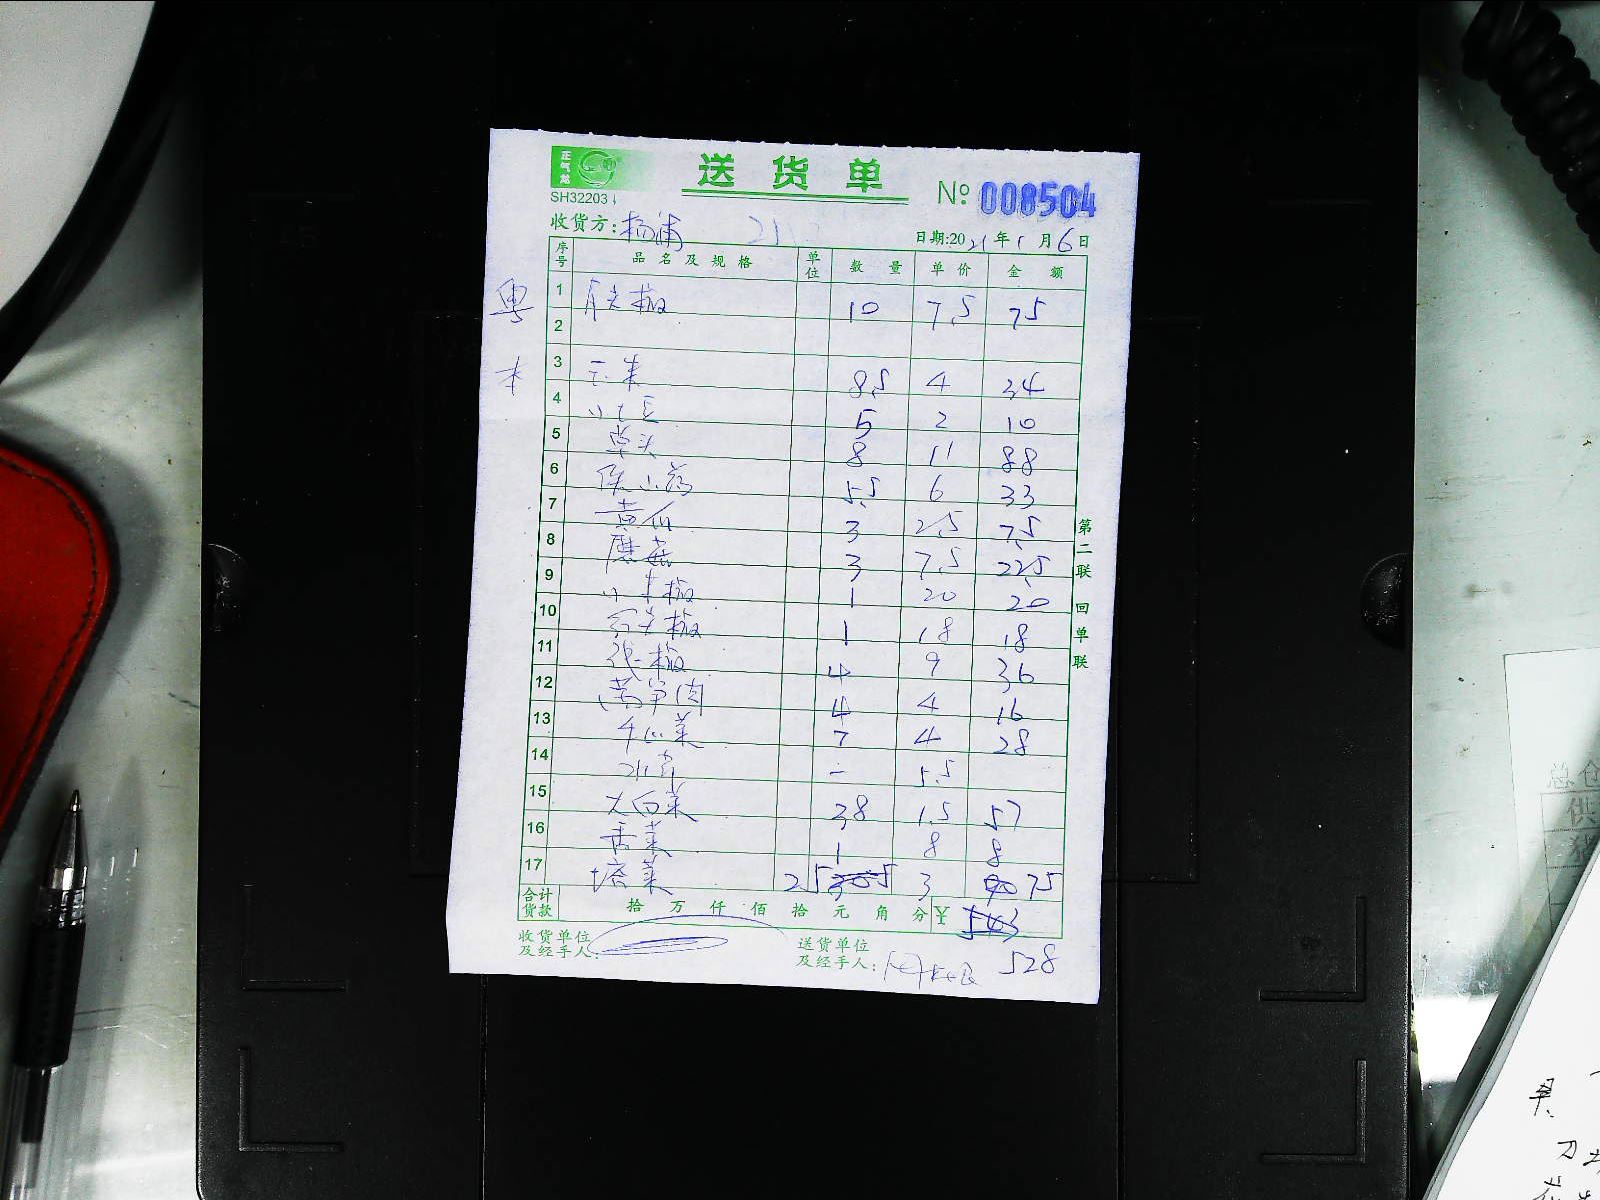 正气龙
送货单
SH32203
No 008504
收货方: 杨浦
日期:2021年1月6日
序号 品名及规格 单位 数量 单价 金额
粤
1 尖椒 10 7.5 75
2
3 8.5 4 34
4 小土豆 5 2 10
5 草头 8 11 88
6 5.5 6 33
7 黄瓜 3 2.5 7.5
8 蘑菇 3 7.5 22.5
9 小米椒 1 20 20
10 红尖椒 1 18 18
11 椒 4 9 36
12 莴笋肉 4 4 16
13 4 28 7
14 5.5
15 大白菜 38 1.5 57
16 香菜 1 8 8
17 塔菜 25 3 75
合计货款 拾 万 仟 佰 拾 元 角 分 ¥ 543
收货单位及经手人:
送货单位及经手人: 528
第二联 回单联